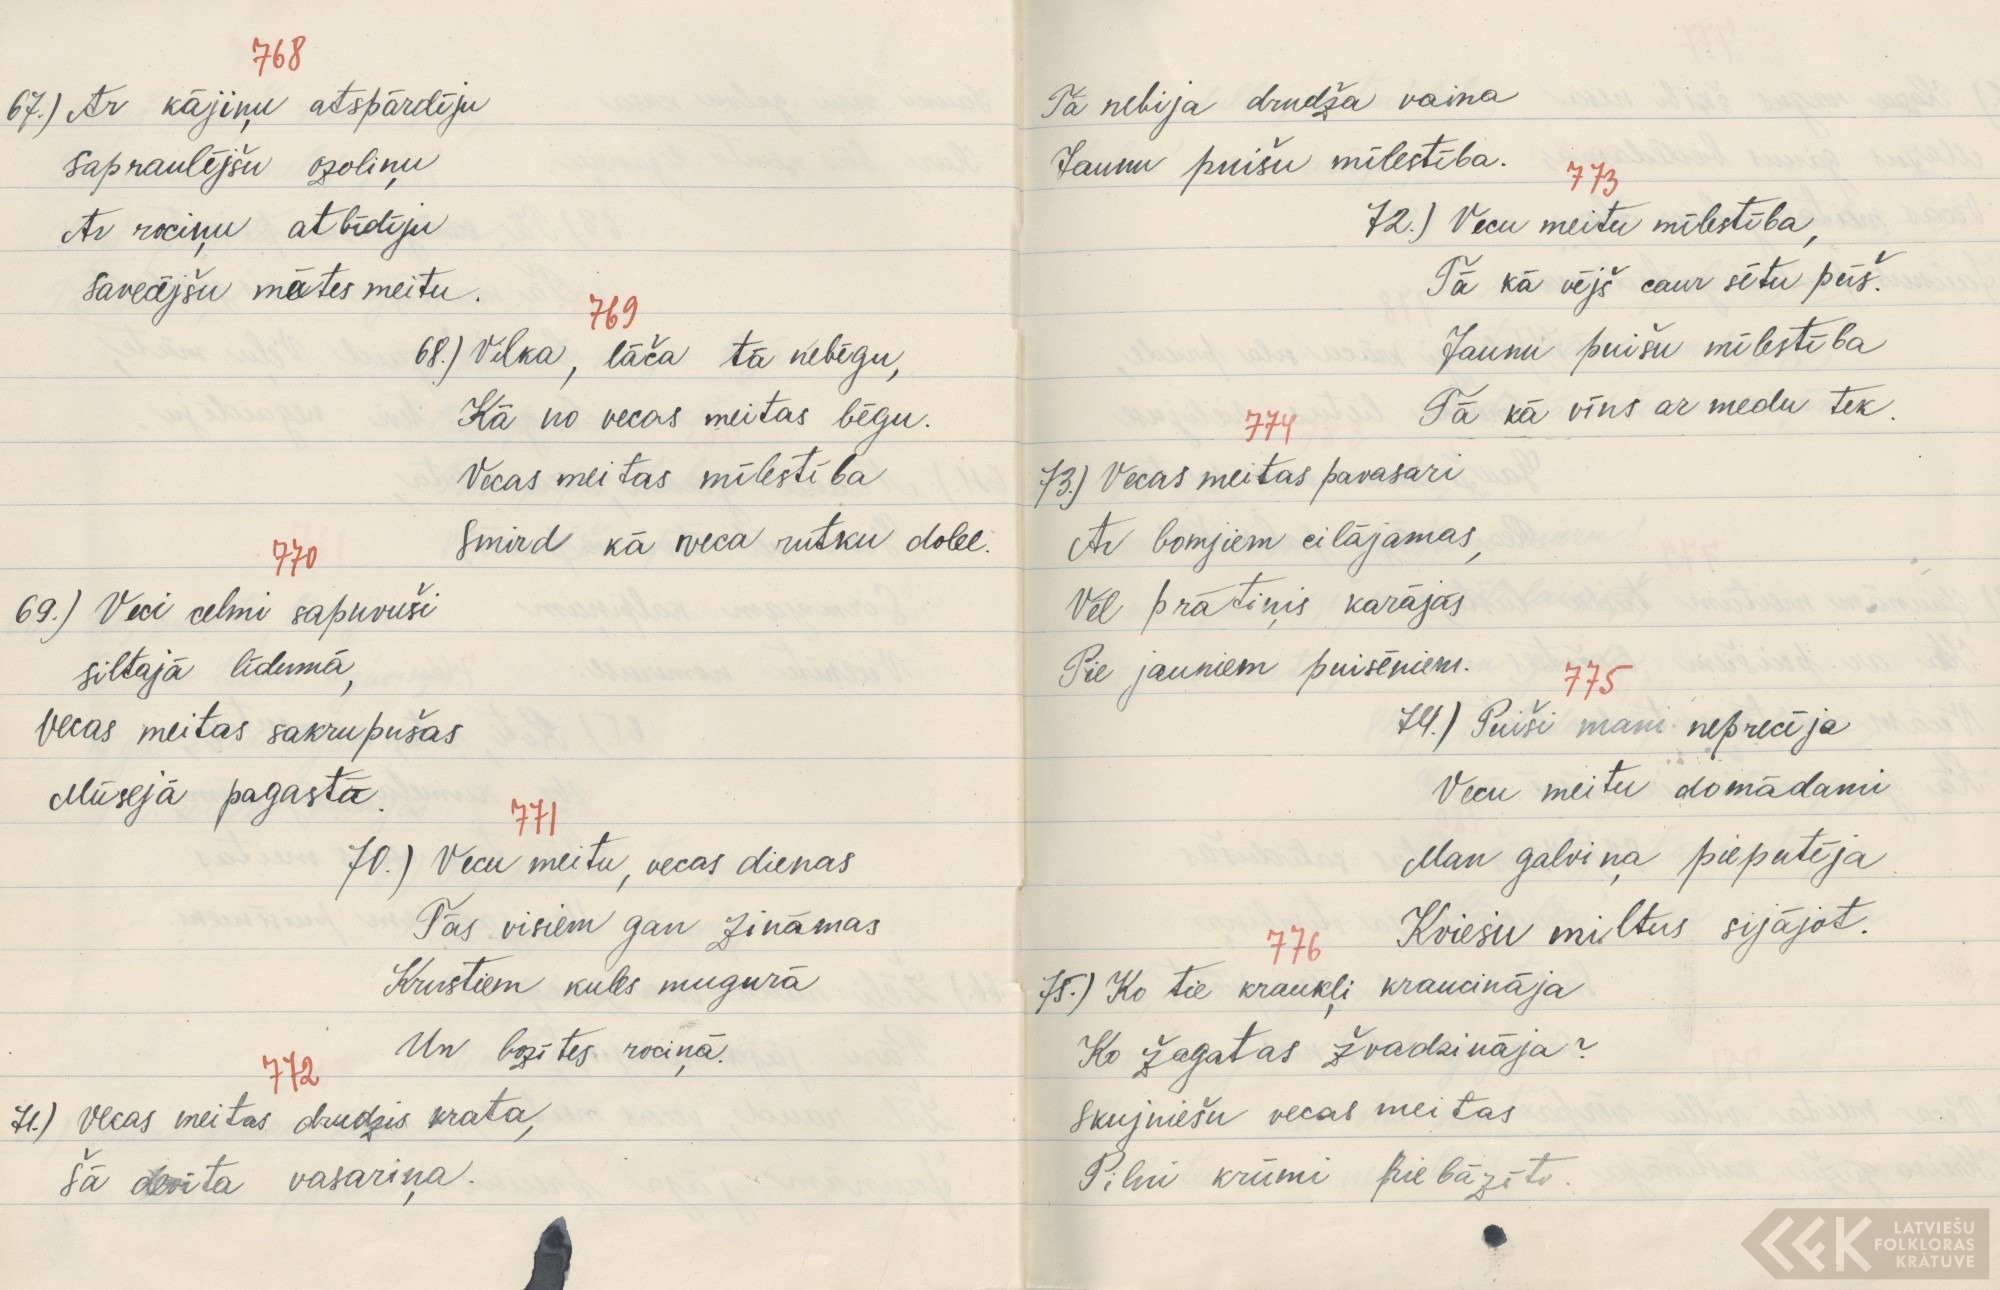 768
67.) Ar kājiņu atspārdīju
Sapraulējšu ozoliņu
Ar rociņu atbīdīju
Savecējšu mātes meitu.
769
68.) Vilka, lāča tā nebēgu,
Kā no vecas meitas bēgu.
Vecas meitas mīlestība
Smird kā veca rutku dobe.
770
69.) Veci celmi sapuvuši
siltajā līdumā,
Vecas meitas sakrupušas
Mūsejā pagastā.
771
70.) Vecu meitu, vecas dienas
Tās visiem gan zināmas
Krustiem kules mugurā
Un bozītes rociņā.
772
71.) Vecas meitas drudzis krata,
Šā devīta vasariņa.
Tā nebija drudža vaina
Jaunu puišu mīlestība.
773
72.) Vecu meitu mīlestība,
Tā kā vējš caur sētu pūš.
Jaunu puišu mīlestība
Tā kā vīns ar medu tek.
774
73.) Vecas meitas pavasari
Ar bomjiem cilājamas,
Vēl prātiņis karājās
Pie jauniem puisēniem.
775
74.) Puiši mani neprecīja
Vecu meitu domādami
Man galviņa pieputēja
Kviešu miltus sijājot.
776
75.) Ko tie kraukļi kraucināja
Ko žagatas žvadzināja?
Skujniešu vecas meitas
Pilni krūmi piebāzīti.
LATVIEŠU
FOLKLORAS
KRĀTUVE